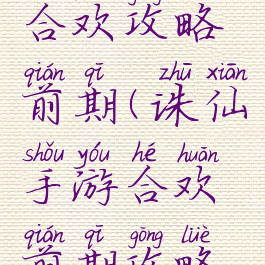 合欢攻略
qián qī zhū xiān
前期(诛仙
shǒu yóu hé huān
手游合欢
qián qī gōng lüè
前期攻略